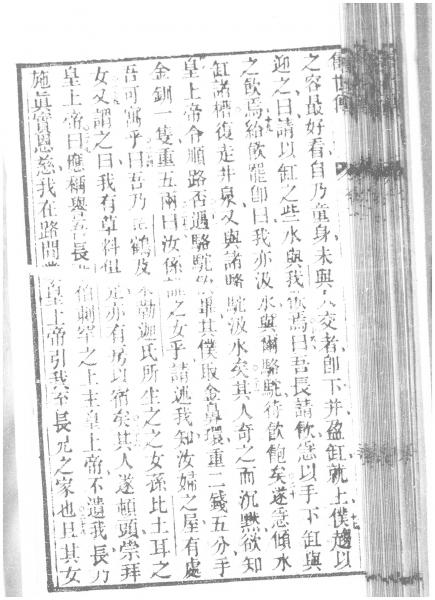 之容最好看自乃童身未與人交者卽下井盈缸就上僕趨以
迎之曰請以缸之些水與我飮焉曰吾長請飮急以手下缸與
之飮焉給飮罷卽曰我亦汲水與爾駱駝待飮飽矣遂急傾水
缸諸槽復走井泉又與諸駱駝汲水矣其人奇之而沉默欲知
皇上帝令順路否遇駱駝飮罷其僕取金鼻環重二錢五分手
金釧一隻重五兩曰汝係誰之女乎請述我知汝婦之屋有處
吾可寓乎曰吾乃 鶴及 勒 迦氏所生之之女孫比土耳之
女又謂之曰我有草料 足亦有房以宿矣其人遂頓頭崇拜
皇上帝曰應稱與吾長 伯剌罕之上主皇上帝不遺我長乃
施眞實恩慈我在路間 皇上帝引我至長兄之家也且其女